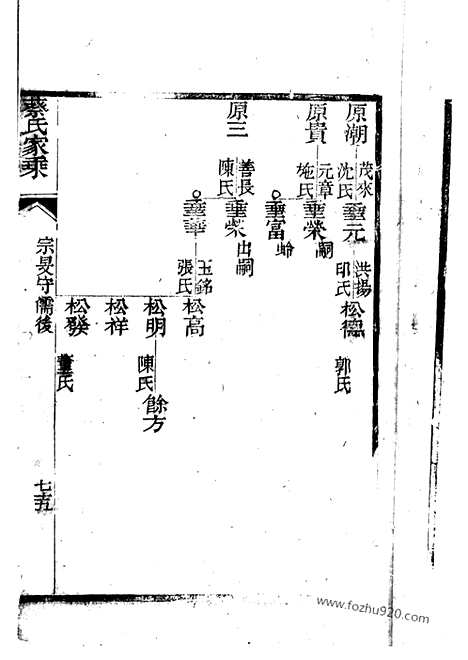 原潮
茂來
沈氏
垂元
洪揚
邱氏
松德
郭氏
原貴
元章
施氏
垂榮
嗣
垂富
蛉
原三
善長
陳氏
垂榮
出嗣
垂華
玉銘
張氏
松高
松明
陳氏
餘方
松祥
松發
董氏
蔡氏家乘
宗旻守儒後
七五
www.fozhu920.com